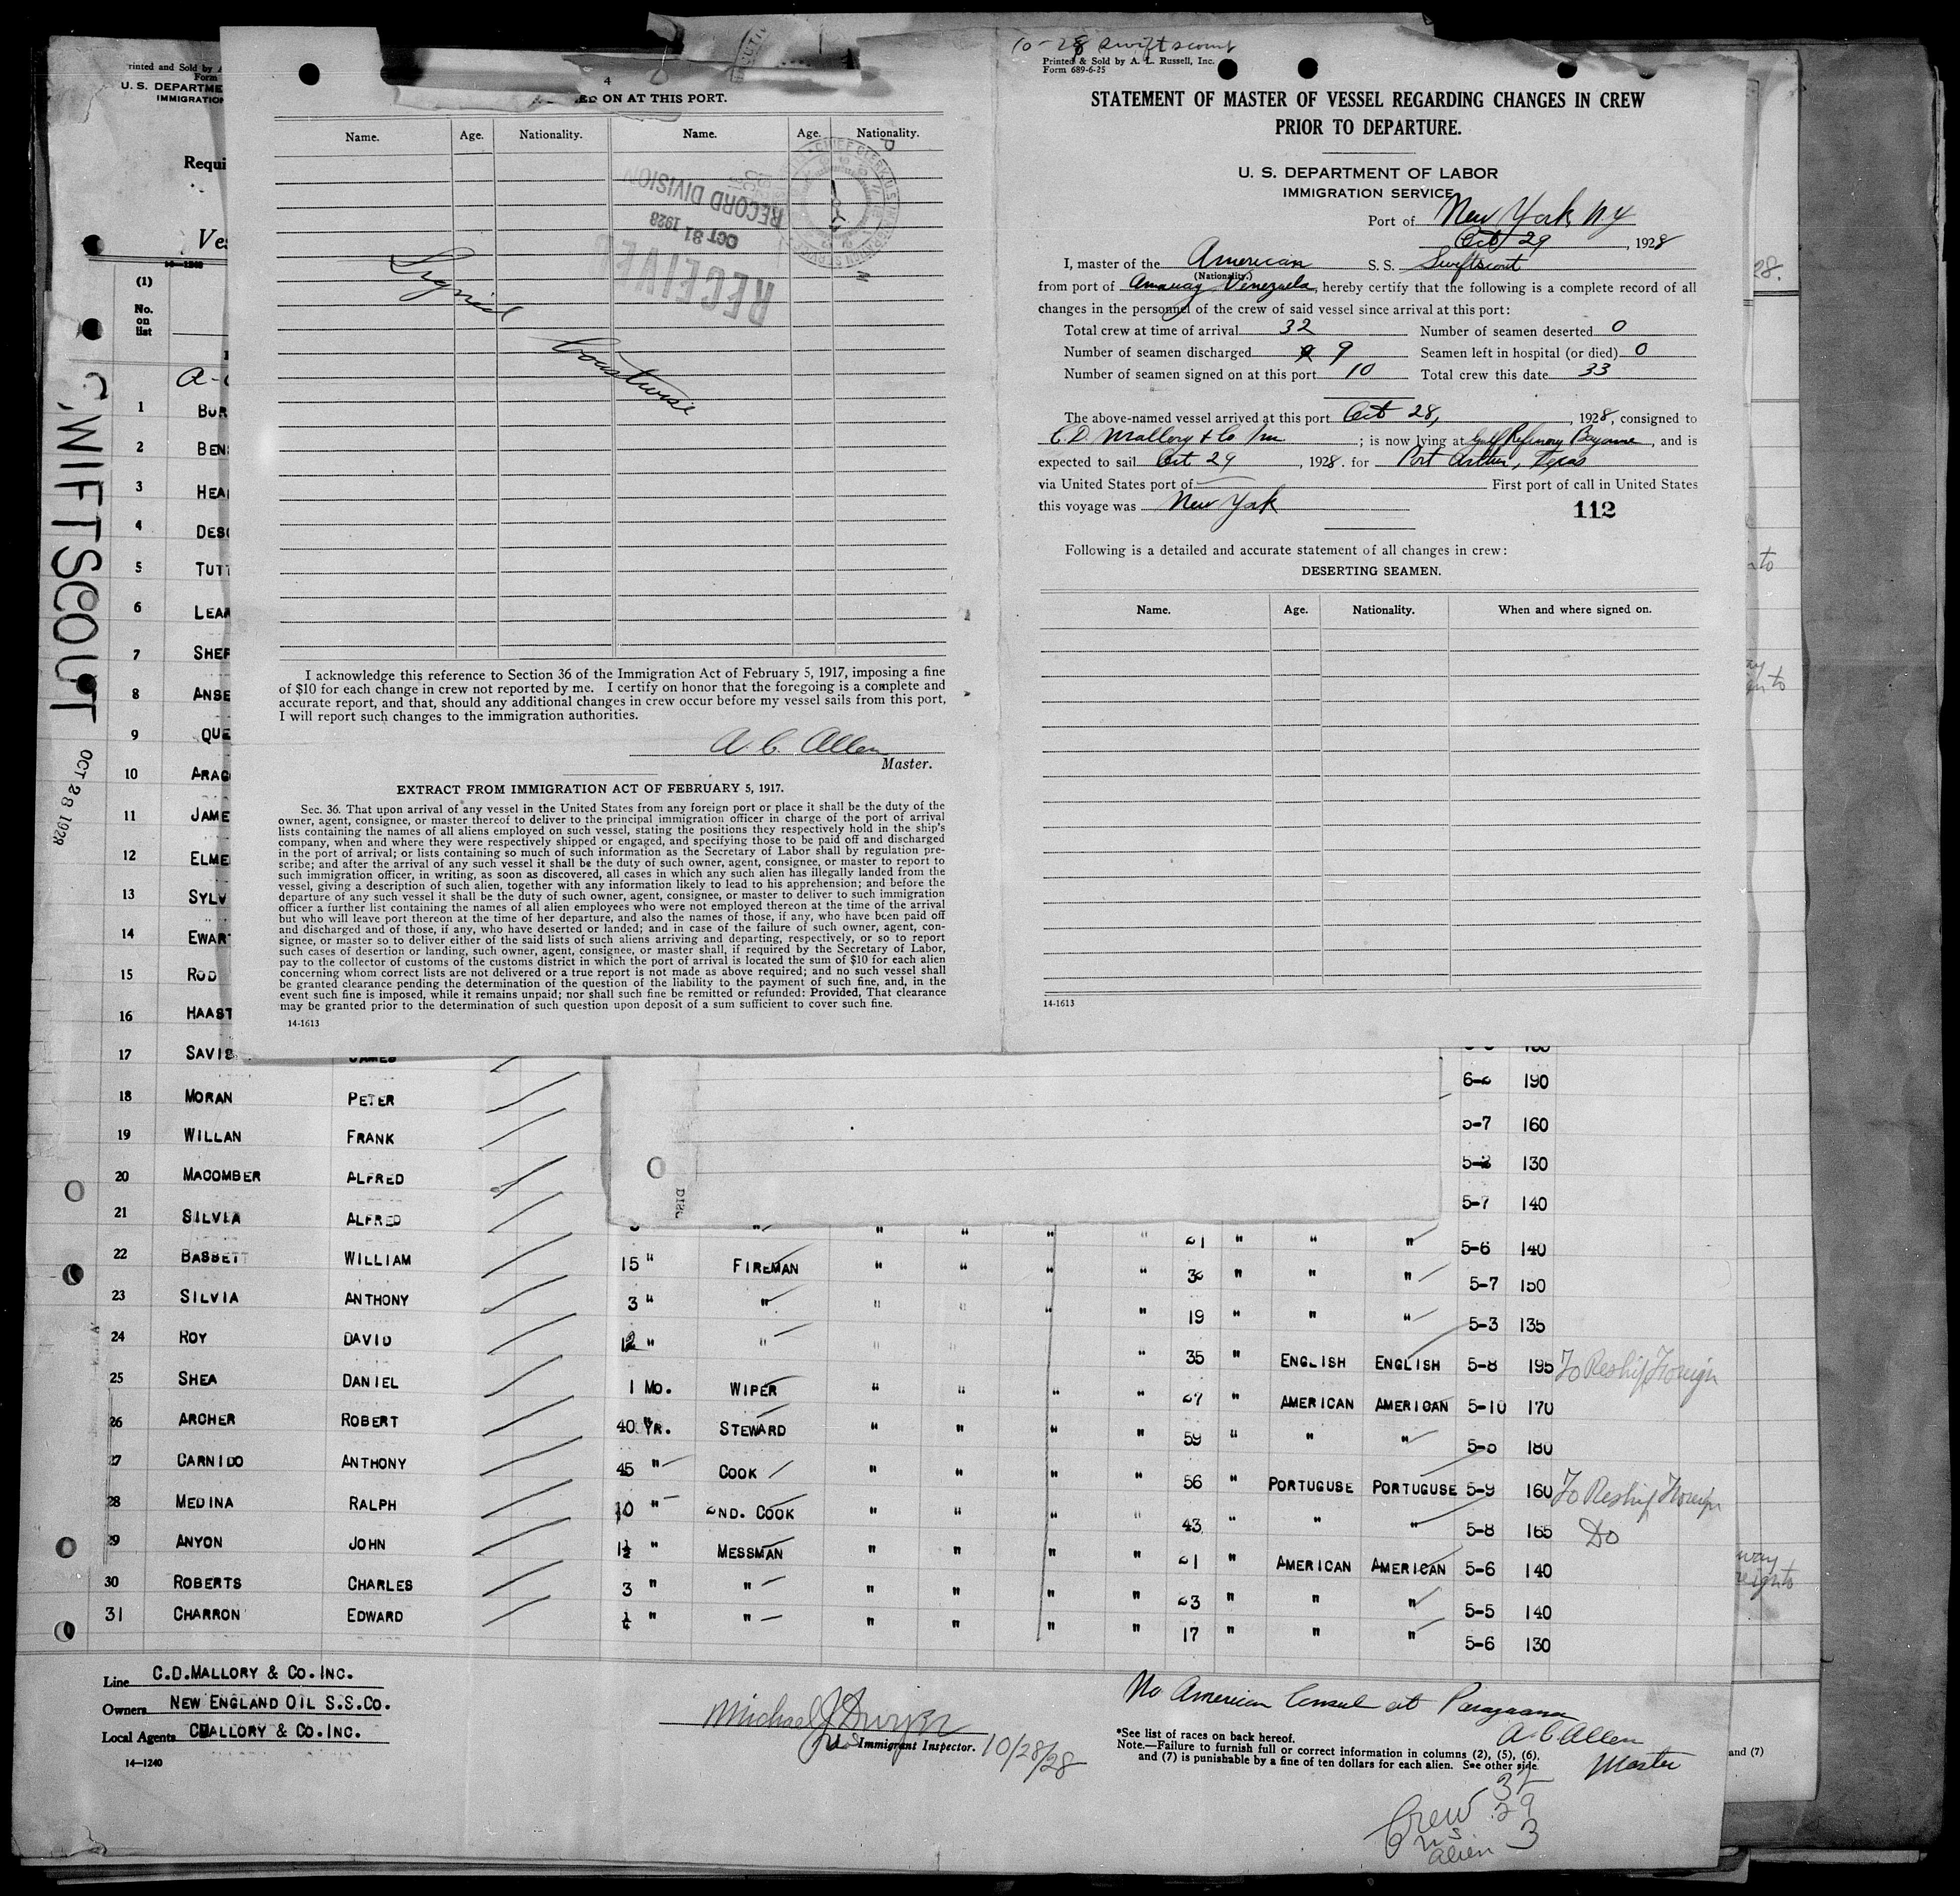 10-28 Swiftscout
Printed & Sold by A. L. Russell, Inc.
Form 689-6-25
STATEMENT OF MASTER OF VESSEL REGARDING CHANGES IN CREW
PRIOR TO DEPARTURE.
U. S. DEPARTMENT OF LABOR
IMMIGRATION SERVICE
Port of New York, N.Y
Oct 29, 1928
I, master of the American S. S. Swiftscout
(Nationality.)
from port of Amauay Venezuela, hereby certify that the following is a complete record of all
changes in the personnel of the crew of said vessel since arrival at this port:
Total crew at time of arrival 32 Number of seamen deserted 0
Number of seamen discharged 9 Seamen left in hospital (or died) 0
Number of seamen signed on at this port 10 Total crew this date 33
The above-named vessel arrived at this port Oct 28, 1928, consigned to
C. D. Mallory & Co Inc ; is now lying at Gulf Refinery Bayonne, and is
expected to sail Oct 29, 1928. for Port Arthur, Texas
via United States port of — First port of call in United States
this voyage was New York
112
Following is a detailed and accurate statement of all changes in crew:
DESERTING SEAMEN.
Name. Age. Nationality. When and where signed on.
14-1613
4
ED ON AT THIS PORT.
Name. Age. Nationality. Name. Age. Nationality.
RECORD DIVISION
OCT 31 1928
RECEIVED
Signed
Coastwise
I acknowledge this reference to Section 36 of the Immigration Act of February 5, 1917, imposing a fine
of $10 for each change in crew not reported by me. I certify on honor that the foregoing is a complete and
accurate report, and that, should any additional changes in crew occur before my vessel sails from this port,
I will report such changes to the immigration authorities.
A. C. Allen
Master.
EXTRACT FROM IMMIGRATION ACT OF FEBRUARY 5, 1917.
Sec. 36. That upon arrival of any vessel in the United States from any foreign port or place it shall be the duty of the
owner, agent, consignee, or master thereof to deliver to the principal immigration officer in charge of the port of arrival
lists containing the names of all aliens employed on such vessel, stating the positions they respectively hold in the ship's
company, when and where they were respectively shipped or engaged, and specifying those to be paid off and discharged
in the port of arrival; or lists containing so much of such information as the Secretary of Labor shall by regulation pre-
scribe; and after the arrival of any such vessel it shall be the duty of such owner, agent, consignee, or master to report to
such immigration officer, in writing, as soon as discovered, all cases in which any such alien has illegally landed from the
vessel, giving a description of such alien, together with any information likely to lead to his apprehension; and before the
departure of any such vessel it shall be the duty of such owner, agent, consignee, or master to deliver to such immigration
officer a further list containing the names of all alien employees who were not employed thereon at the time of the arrival
but who will leave port thereon at the time of her departure, and also the names of those, if any, who have been paid off
and discharged and of those, if any, who have deserted or landed; and in case of the failure of such owner, agent, con-
signee, or master so to deliver either of the said lists of such aliens arriving and departing, respectively, or so to report
such cases of desertion or landing, such owner, agent, consignee, or master shall, if required by the Secretary of Labor,
pay to the collector of customs of the customs district in which the port of arrival is located the sum of $10 for each alien
concerning whom correct lists are not delivered or a true report is not made as above required; and no such vessel shall
be granted clearance pending the determination of the question of the liability to the payment of such fine, and, in the
event such fine is imposed, while it remains unpaid; nor shall such fine be remitted or refunded: Provided, That clearance
may be granted prior to the determination of such question upon deposit of a sum sufficient to cover such fine.
14-1613
rinted and Sold by A
Form
U. S. DEPARTME
IMMIGRATION
Requi
Ves
(1)
No.
on
list
SWIFTSCOUT
OCT 28 1928
1 BUR
2 BEN
3 HEA
4 DESC
5 TUTT
6 LEAR
7 SHER
8 ANSE
9 QUE
10 ARAG
11 JAME
12 ELME
13 SYLV
14 EWART
15 ROD
16 HAAST
17 SAVIS JAMES
18 MORAN PETER 190
19 WILLAN FRANK 5-7 160
20 MACOMBER ALFRED 5-2 130
21 SILVIA ALFRED 5-7 140
DISC
22 BASSETT WILLIAM 15 " FIREMAN " " " " 5-6 140
23 SILVIA ANTHONY 3 " " " " " " 30 " " " 5-7 150
24 ROY DAVID 12 " " " " " 19 " " " 5-3 135
" 35 " ENGLISH ENGLISH 5-8 195 To Reship Foreign
25 SHEA DANIEL 1 MO. WIPER " " " " 27 " AMERICAN AMERICAN 5-10 170
26 ARCHER ROBERT 40 YR. STEWARD " " " " 59 " " " 5-5 180
27 CARNIDO ANTHONY 45 " COOK " " " " 56 " PORTUGUSE PORTUGUSE 5-9 160 To Reship Foreign
28 MEDINA RALPH 10 " 2ND. COOK " " " " 43 " " " 5-8 165 Do
29 ANYON JOHN 1½ " MESSMAN " " " " 21 " AMERICAN AMERICAN 5-6 140
30 ROBERTS CHARLES 3 " " " " " " 23 " " " 5-5 140
31 CHARRON EDWARD " " " " " " 17 " " " 5-6 130
Line C.D.MALLORY & CO.INC.
Owners NEW ENGLAND OIL S.S.CO.
Local Agents CDMALLORY & CO.INC.
14-1240
Michael J Dwyer
Immigrant Inspector. 10/28/28
No American Consul at Paraguana
A. C. Allen
Master
*See list of races on back hereof.
Note.—Failure to furnish full or correct information in columns (2), (5), (6),
and (7) is punishable by a fine of ten dollars for each alien. See other side
and (7)
Crew 32
US 29
alien 3